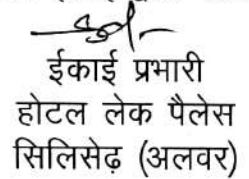 ईकाई प्रभारी
होटल लेक पैलेस
सिलिसेढ़ (अलवर)